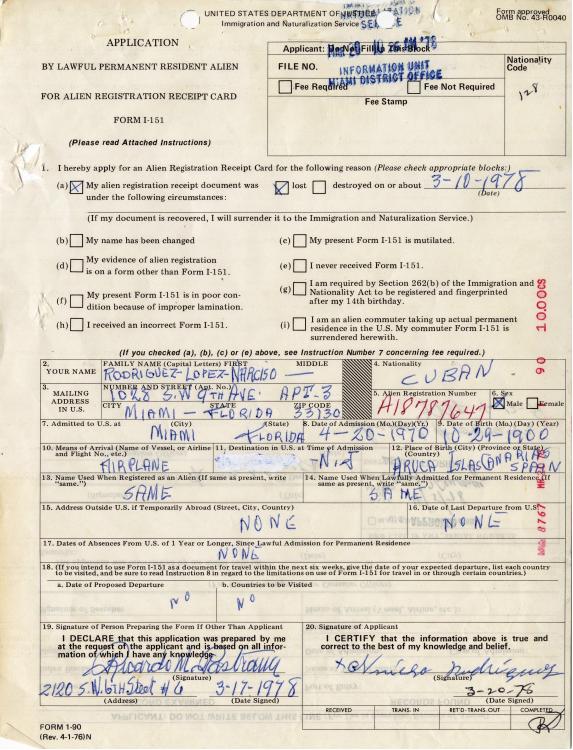 UNITED STATES DEPARTMENT OF JUSTICE
Immigration and Naturalization Service
Form approved
OMB No. 43-R0040
APPLICATION
BY LAWFUL PERMANENT RESIDENT ALIEN
FOR ALIEN REGISTRATION RECEIPT CARD
FORM I-151
(Please read Attached Instructions)
Applicant: Do Not Fill In This Block
FILE NO.
INFORMATION UNIT
MIAMI DISTRICT OFFICE
Nationality
Code
128
Fee Required
Fee Not Required
Fee Stamp
1. I hereby apply for an Alien Registration Receipt Card for the following reason (Please check appropriate blocks:)
(a) My alien registration receipt document was lost destroyed on or about 3-10-1978
under the following circumstances: (Date)
(If my document is recovered, I will surrender it to the Immigration and Naturalization Service.)
(b) My name has been changed
(c) My present Form I-151 is mutilated.
(d) My evidence of alien registration
is on a form other than Form I-151.
(e) I never received Form I-151.
(f) My present Form I-151 is in poor con-
dition because of improper lamination.
(g) I am required by Section 262(b) of the Immigration and
Nationality Act to be registered and fingerprinted
after my 14th birthday.
(h) I received an incorrect Form I-151.
(i) I am an alien commuter taking up actual permanent
residence in the U.S. My commuter Form I-151 is
surrendered herewith.
90 10.00CS
(If you checked (a), (b), (c) or (e) above, see Instruction Number 7 concerning fee required.)
2. YOUR NAME
FAMILY NAME (Capital Letters) FIRST MIDDLE
RODRIGUEZ-LOPEZ-NARCISO
4. Nationality
CUBAN
3. MAILING
ADDRESS
IN U.S.
NUMBER AND STREET (Apt. No.)
1028 S.W 9TH AVE. APT-3
CITY STATE ZIP CODE
MIAMI - FLORIDA 33130
5. Alien Registration Number
A18787647
6. Sex
Male Female
7. Admitted to U.S. at (City) (State)
MIAMI FLORIDA
8. Date of Admission (Mo.) (Day) (Yr.)
4-20-1970
9. Date of Birth (Mo.) (Day) (Year)
10-29-1900
10. Means of Arrival (Name of Vessel, or Airline
and Flight No., etc.)
AIRPLANE
11. Destination in U.S. at Time of Admission
N.J
12. Place of Birth (City) (Province or State)
(Country)
ARUCA ISLAS CANARIAS
SPAIN
13. Name Used When Registered as an Alien (If same as present, write
"same.")
SAME
14. Name Used When Lawfully Admitted for Permanent Residence (If
same as present, write "same.")
SAME
15. Address Outside U.S. if Temporarily Abroad (Street, City, Country)
NONE
16. Date of Last Departure from U.S.
NONE
17. Dates of Absences From U.S. of 1 Year or Longer, Since Lawful Admission for Permanent Residence
NONE
18. (If you intend to use Form I-151 as a document for travel within the next six weeks, give the date of your expected departure, list each country
to be visited, and be sure to read Instruction 8 in regard to the limitations on use of Form I-151 for travel in or through certain countries.)
a. Date of Proposed Departure
NO
b. Countries to be Visited
NO
19. Signature of Person Preparing the Form If Other Than Applicant
I DECLARE that this application was prepared by me
at the request of the applicant and is based on all infor-
mation of which I have any knowledge.
(Signature)
2120 S.W. 6TH Street # 6 3-17-1978
(Address) (Date Signed)
20. Signature of Applicant
I CERTIFY that the information above is true and
correct to the best of my knowledge and belief.
x Narciso Rodriguez
(Signature)
3-20-78
(Date Signed)
RECEIVED TRANS. IN RET'D-TRANS. OUT COMPLETED
FORM I-90
(Rev. 4-1-76)N